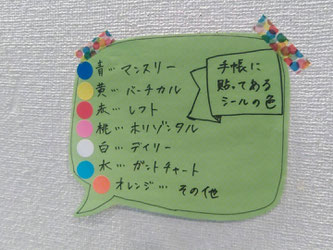 手帳に
貼ってある
シールの色
青…マンスリー
黄…バーチカル
赤…レフト
桃…ホリゾンタル
白…デイリー
水…ガントチャート
オレンジ…その他